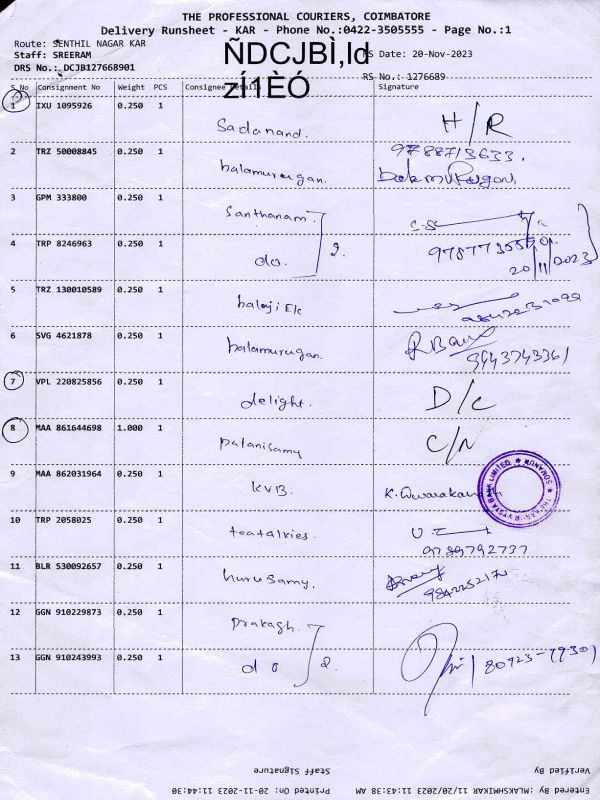 THE PROFESSIONAL COURIERS, COIMBATORE
Delivery Runsheet - KAR - Phone No.:0422-3505555 - Page No.:1
Route: SENTHIL NAGAR KAR
Staff: SREERAM
RS Date: 20-Nov-2023
DRS No.: DCJB127668901
ÑDCJBÌ,ld
zÍ1ÈÓ
RS No.: 1276689
S.No Consignment No Weight PCS Consignee Details Signature
1 IXU 1095926 0.250 1 Sadanand. H/R
2 TRZ 50008845 0.250 1 balamurugan. 9788713633.
3 GPM 333800 0.250 1 Santhanam
4 TRP 8246963 0.250 1 do. 2.
20/11/2023
5 TRZ 130010589 0.250 1 balaji Ek
6 SVG 4621878 0.250 1 balamurugan. 9443743361
7 VPL 220825856 0.250 1 delight. D/C
8 MAA 861644698 1.000 1 palanisamy C/N
9 MAA 862031964 0.250 1 KVB.
10 TRP 2058025 0.250 1
9789792737
11 BLR 530092657 0.250 1
12 GGN 910229873 0.250 1 prakash.
13 GGN 910243993 0.250 1 do 2.
Staff Signature Verified By
Printed On: 20-11-2023 11:44:30 Entered By :MLAKSHMIKAR 20/11/2023 11:43:38 AM